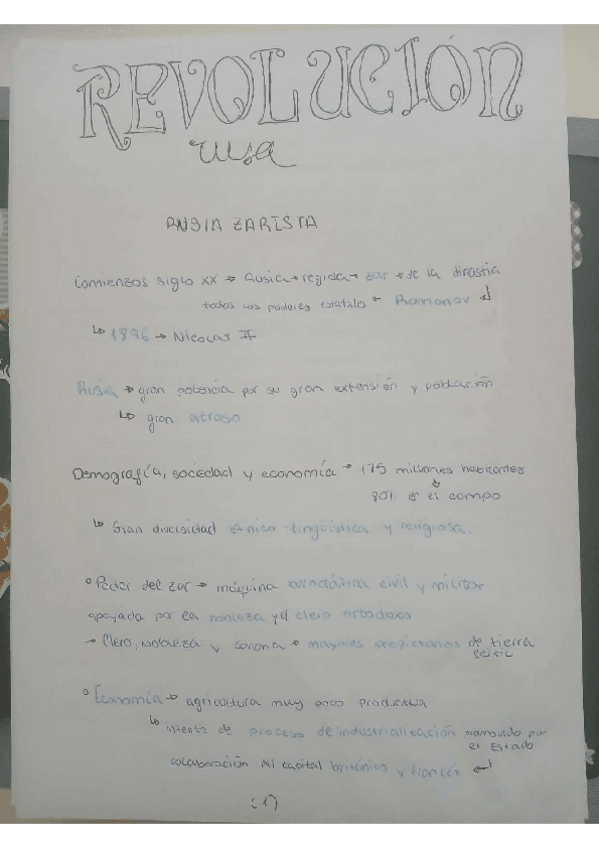 REVOLUCIÓN
rusa
RUSIA ZARISTA
Comienzos siglo XX → Rusia → regida → zar → de la dinastía
todos los poderes estatale Romanov ↲
↳ 1896 → Nicolas II
Rusia → gran potencia por su gran extensión y población
↳ gran atraso
Demografía, sociedad y economía → 175 millones habitantes
↓
80% en el campo
↳ Gran diversidad étnico-lingüística y religiosa.
° Poder del zar → máquina burocrática civil y militar
apoyada por la nobleza y el clero ortodoxo
→ Clero, nobleza y corona → mayores propietarios de tierra
° Economía → agricultura muy poco productiva
↳ intento de proceso de industrialización promovido por
el Estado
colaboración del capital británico y francés ↲
(1)